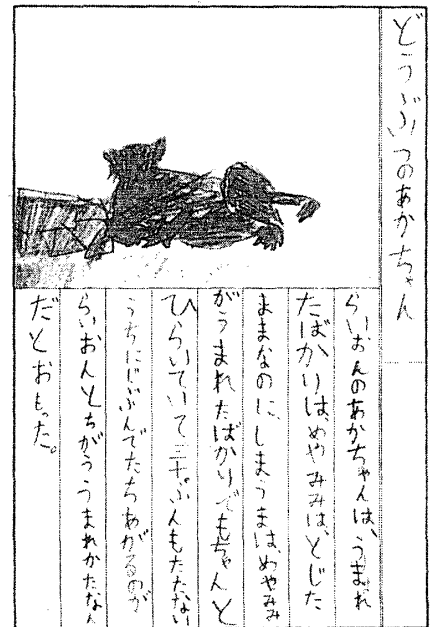 どうぶつのあかちゃん
らいおんのあかちゃんは、うまれ
たばかりは、めやみみは、とじた
ままなのに、しまうまは、めやみみ
がうまれたばかりでもちゃんと
ひらいていて三十ぷんもたたない
うちにじぶんでたちあがるのが
らいおんとちがううまれかたなん
だとおもった。